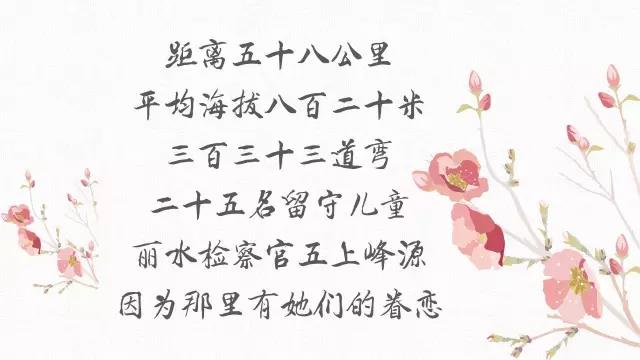 距离五十八公里
平均海拔八百二十米
三百三十三道弯
二十五名留守儿童
丽水检察官五上峰源
因为那里有她们的眷恋